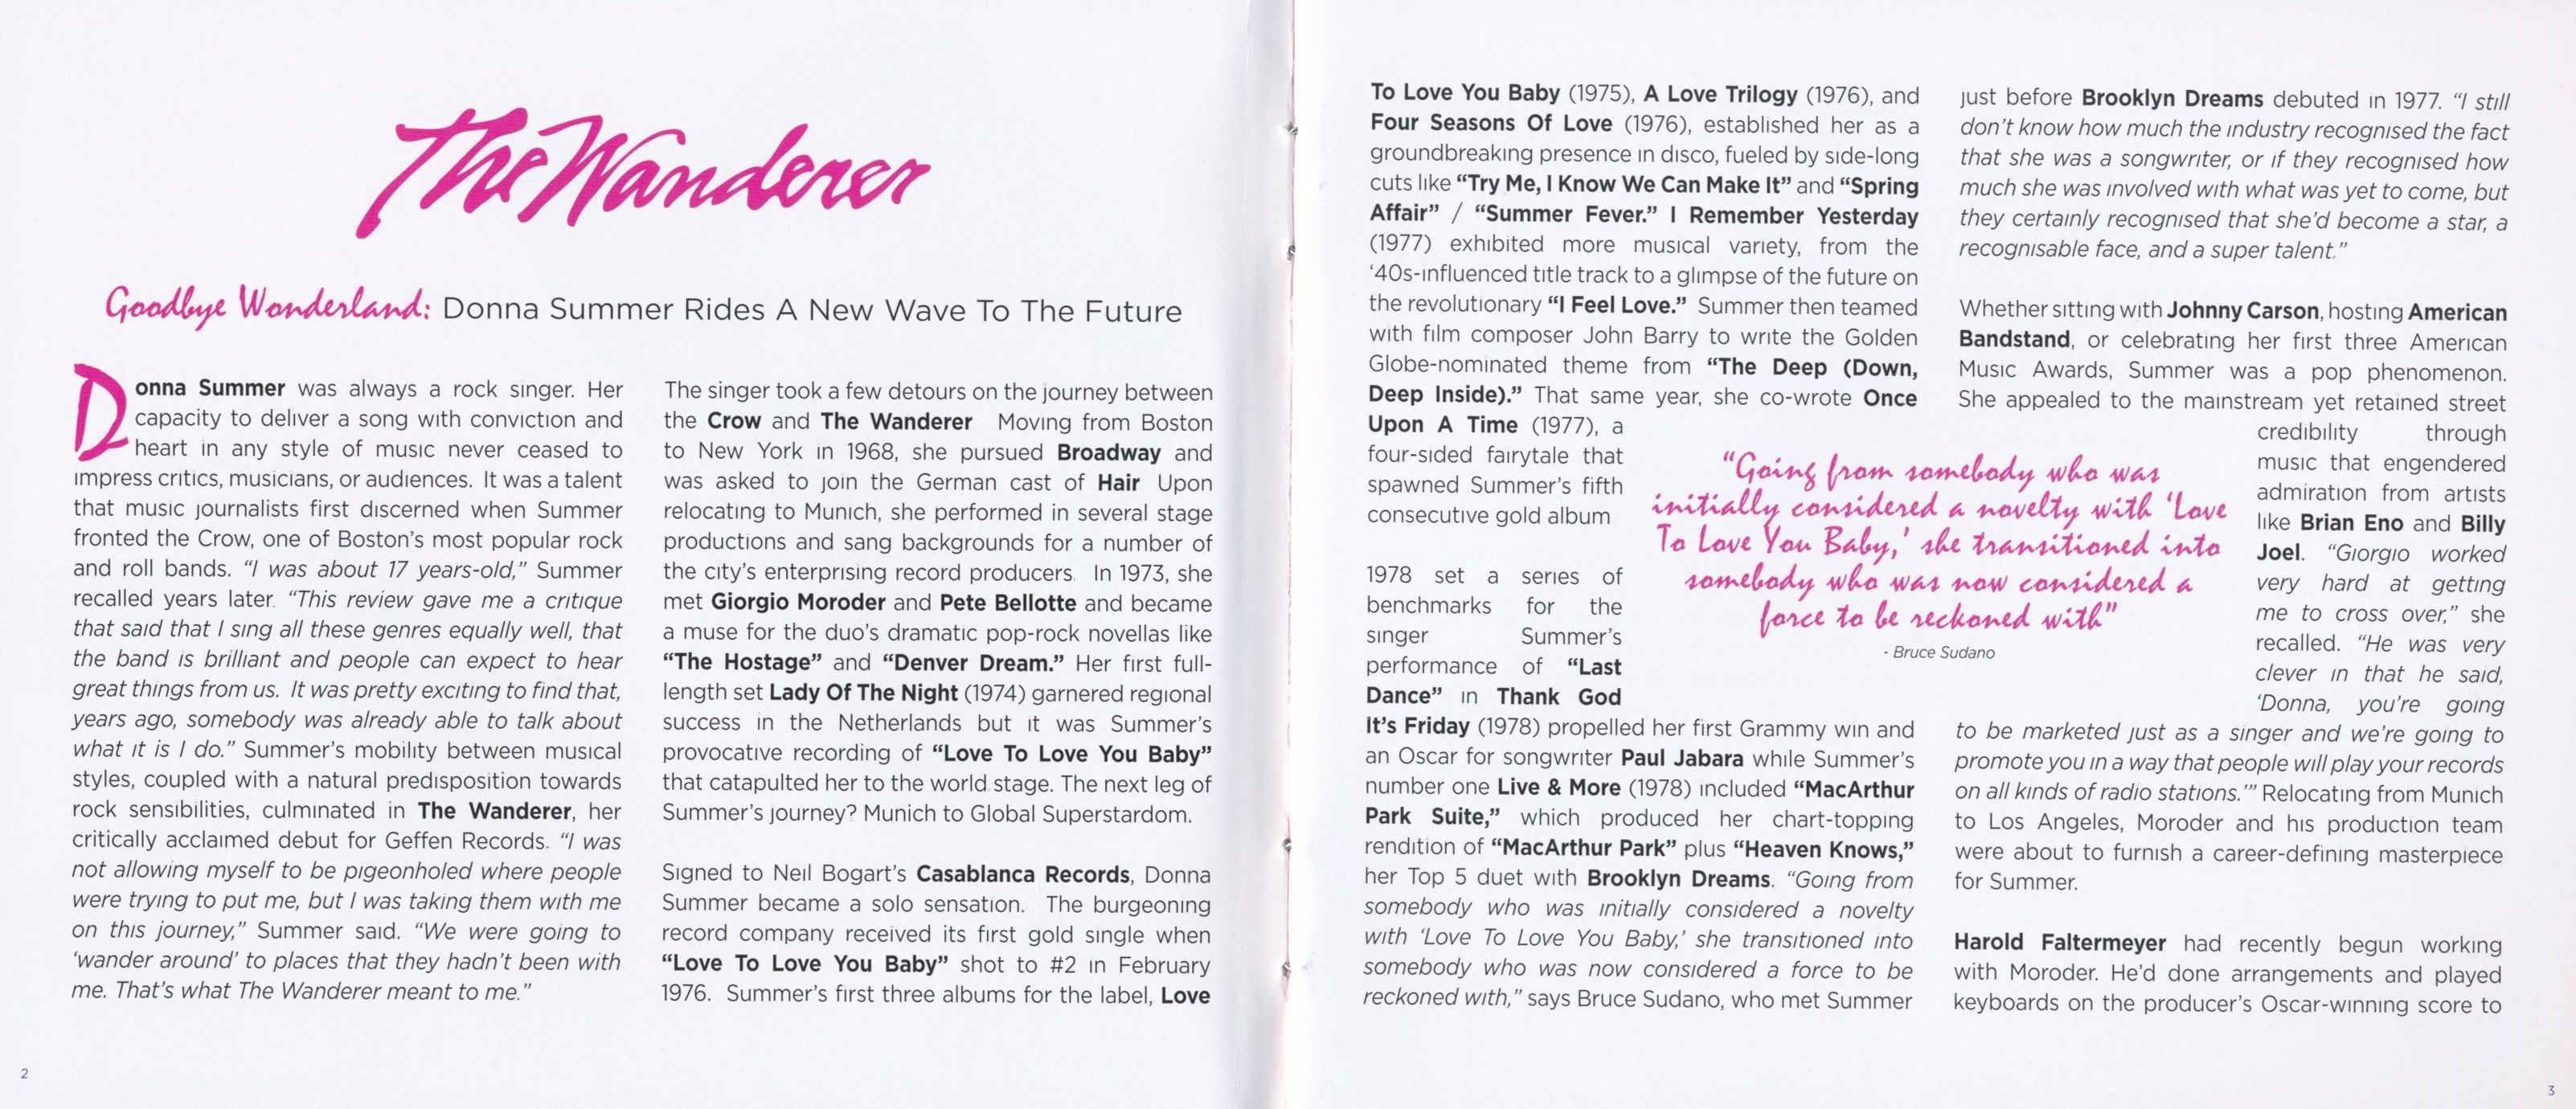 The Wanderer
Goodbye Wonderland: Donna Summer Rides A New Wave To The Future
Donna Summer was always a rock singer. Her
capacity to deliver a song with conviction and
heart in any style of music never ceased to
impress critics, musicians, or audiences. It was a talent
that music journalists first discerned when Summer
fronted the Crow, one of Boston's most popular rock
and roll bands. “I was about 17 years-old,” Summer
recalled years later. “This review gave me a critique
that said that I sing all these genres equally well, that
the band is brilliant and people can expect to hear
great things from us. It was pretty exciting to find that,
years ago, somebody was already able to talk about
what it is I do.” Summer's mobility between musical
styles, coupled with a natural predisposition towards
rock sensibilities, culminated in The Wanderer, her
critically acclaimed debut for Geffen Records. “I was
not allowing myself to be pigeonholed where people
were trying to put me, but I was taking them with me
on this journey,” Summer said. “We were going to
‘wander around’ to places that they hadn't been with
me. That's what The Wanderer meant to me.”
The singer took a few detours on the journey between
the Crow and The Wanderer Moving from Boston
to New York in 1968, she pursued Broadway and
was asked to join the German cast of Hair Upon
relocating to Munich, she performed in several stage
productions and sang backgrounds for a number of
the city's enterprising record producers. In 1973, she
met Giorgio Moroder and Pete Bellotte and became
a muse for the duo's dramatic pop-rock novellas like
“The Hostage” and “Denver Dream.” Her first full-
length set Lady Of The Night (1974) garnered regional
success in the Netherlands but it was Summer's
provocative recording of “Love To Love You Baby”
that catapulted her to the world stage. The next leg of
Summer's journey? Munich to Global Superstardom.
Signed to Neil Bogart's Casablanca Records, Donna
Summer became a solo sensation. The burgeoning
record company received its first gold single when
“Love To Love You Baby” shot to #2 in February
1976. Summer's first three albums for the label, Love
2
To Love You Baby (1975), A Love Trilogy (1976), and
Four Seasons Of Love (1976), established her as a
groundbreaking presence in disco, fueled by side-long
cuts like “Try Me, I Know We Can Make It” and “Spring
Affair” / “Summer Fever.” I Remember Yesterday
(1977) exhibited more musical variety, from the
‘40s-influenced title track to a glimpse of the future on
the revolutionary “I Feel Love.” Summer then teamed
with film composer John Barry to write the Golden
Globe-nominated theme from “The Deep (Down,
Deep Inside).” That same year, she co-wrote Once
Upon A Time (1977), a
four-sided fairytale that
spawned Summer's fifth
consecutive gold album
1978 set a series of
benchmarks for the
singer Summer's
performance of “Last
Dance” in Thank God
It's Friday (1978) propelled her first Grammy win and
an Oscar for songwriter Paul Jabara while Summer's
number one Live & More (1978) included “MacArthur
Park Suite,” which produced her chart-topping
rendition of “MacArthur Park” plus “Heaven Knows,”
her Top 5 duet with Brooklyn Dreams. “Going from
somebody who was initially considered a novelty
with ‘Love To Love You Baby,’ she transitioned into
somebody who was now considered a force to be
reckoned with,” says Bruce Sudano, who met Summer
“Going from somebody who was
initially considered a novelty with ‘Love
To Love You Baby,’ she transitioned into
somebody who was now considered a
force to be reckoned with”
- Bruce Sudano
just before Brooklyn Dreams debuted in 1977. “I still
don't know how much the industry recognised the fact
that she was a songwriter, or if they recognised how
much she was involved with what was yet to come, but
they certainly recognised that she'd become a star, a
recognisable face, and a super talent.”
Whether sitting with Johnny Carson, hosting American
Bandstand, or celebrating her first three American
Music Awards, Summer was a pop phenomenon.
She appealed to the mainstream yet retained street
credibility through
music that engendered
admiration from artists
like Brian Eno and Billy
Joel. “Giorgio worked
very hard at getting
me to cross over,” she
recalled. “He was very
clever in that he said,
‘Donna, you're going
to be marketed just as a singer and we're going to
promote you in a way that people will play your records
on all kinds of radio stations.’” Relocating from Munich
to Los Angeles, Moroder and his production team
were about to furnish a career-defining masterpiece
for Summer.
Harold Faltermeyer had recently begun working
with Moroder. He'd done arrangements and played
keyboards on the producer's Oscar-winning score to
3